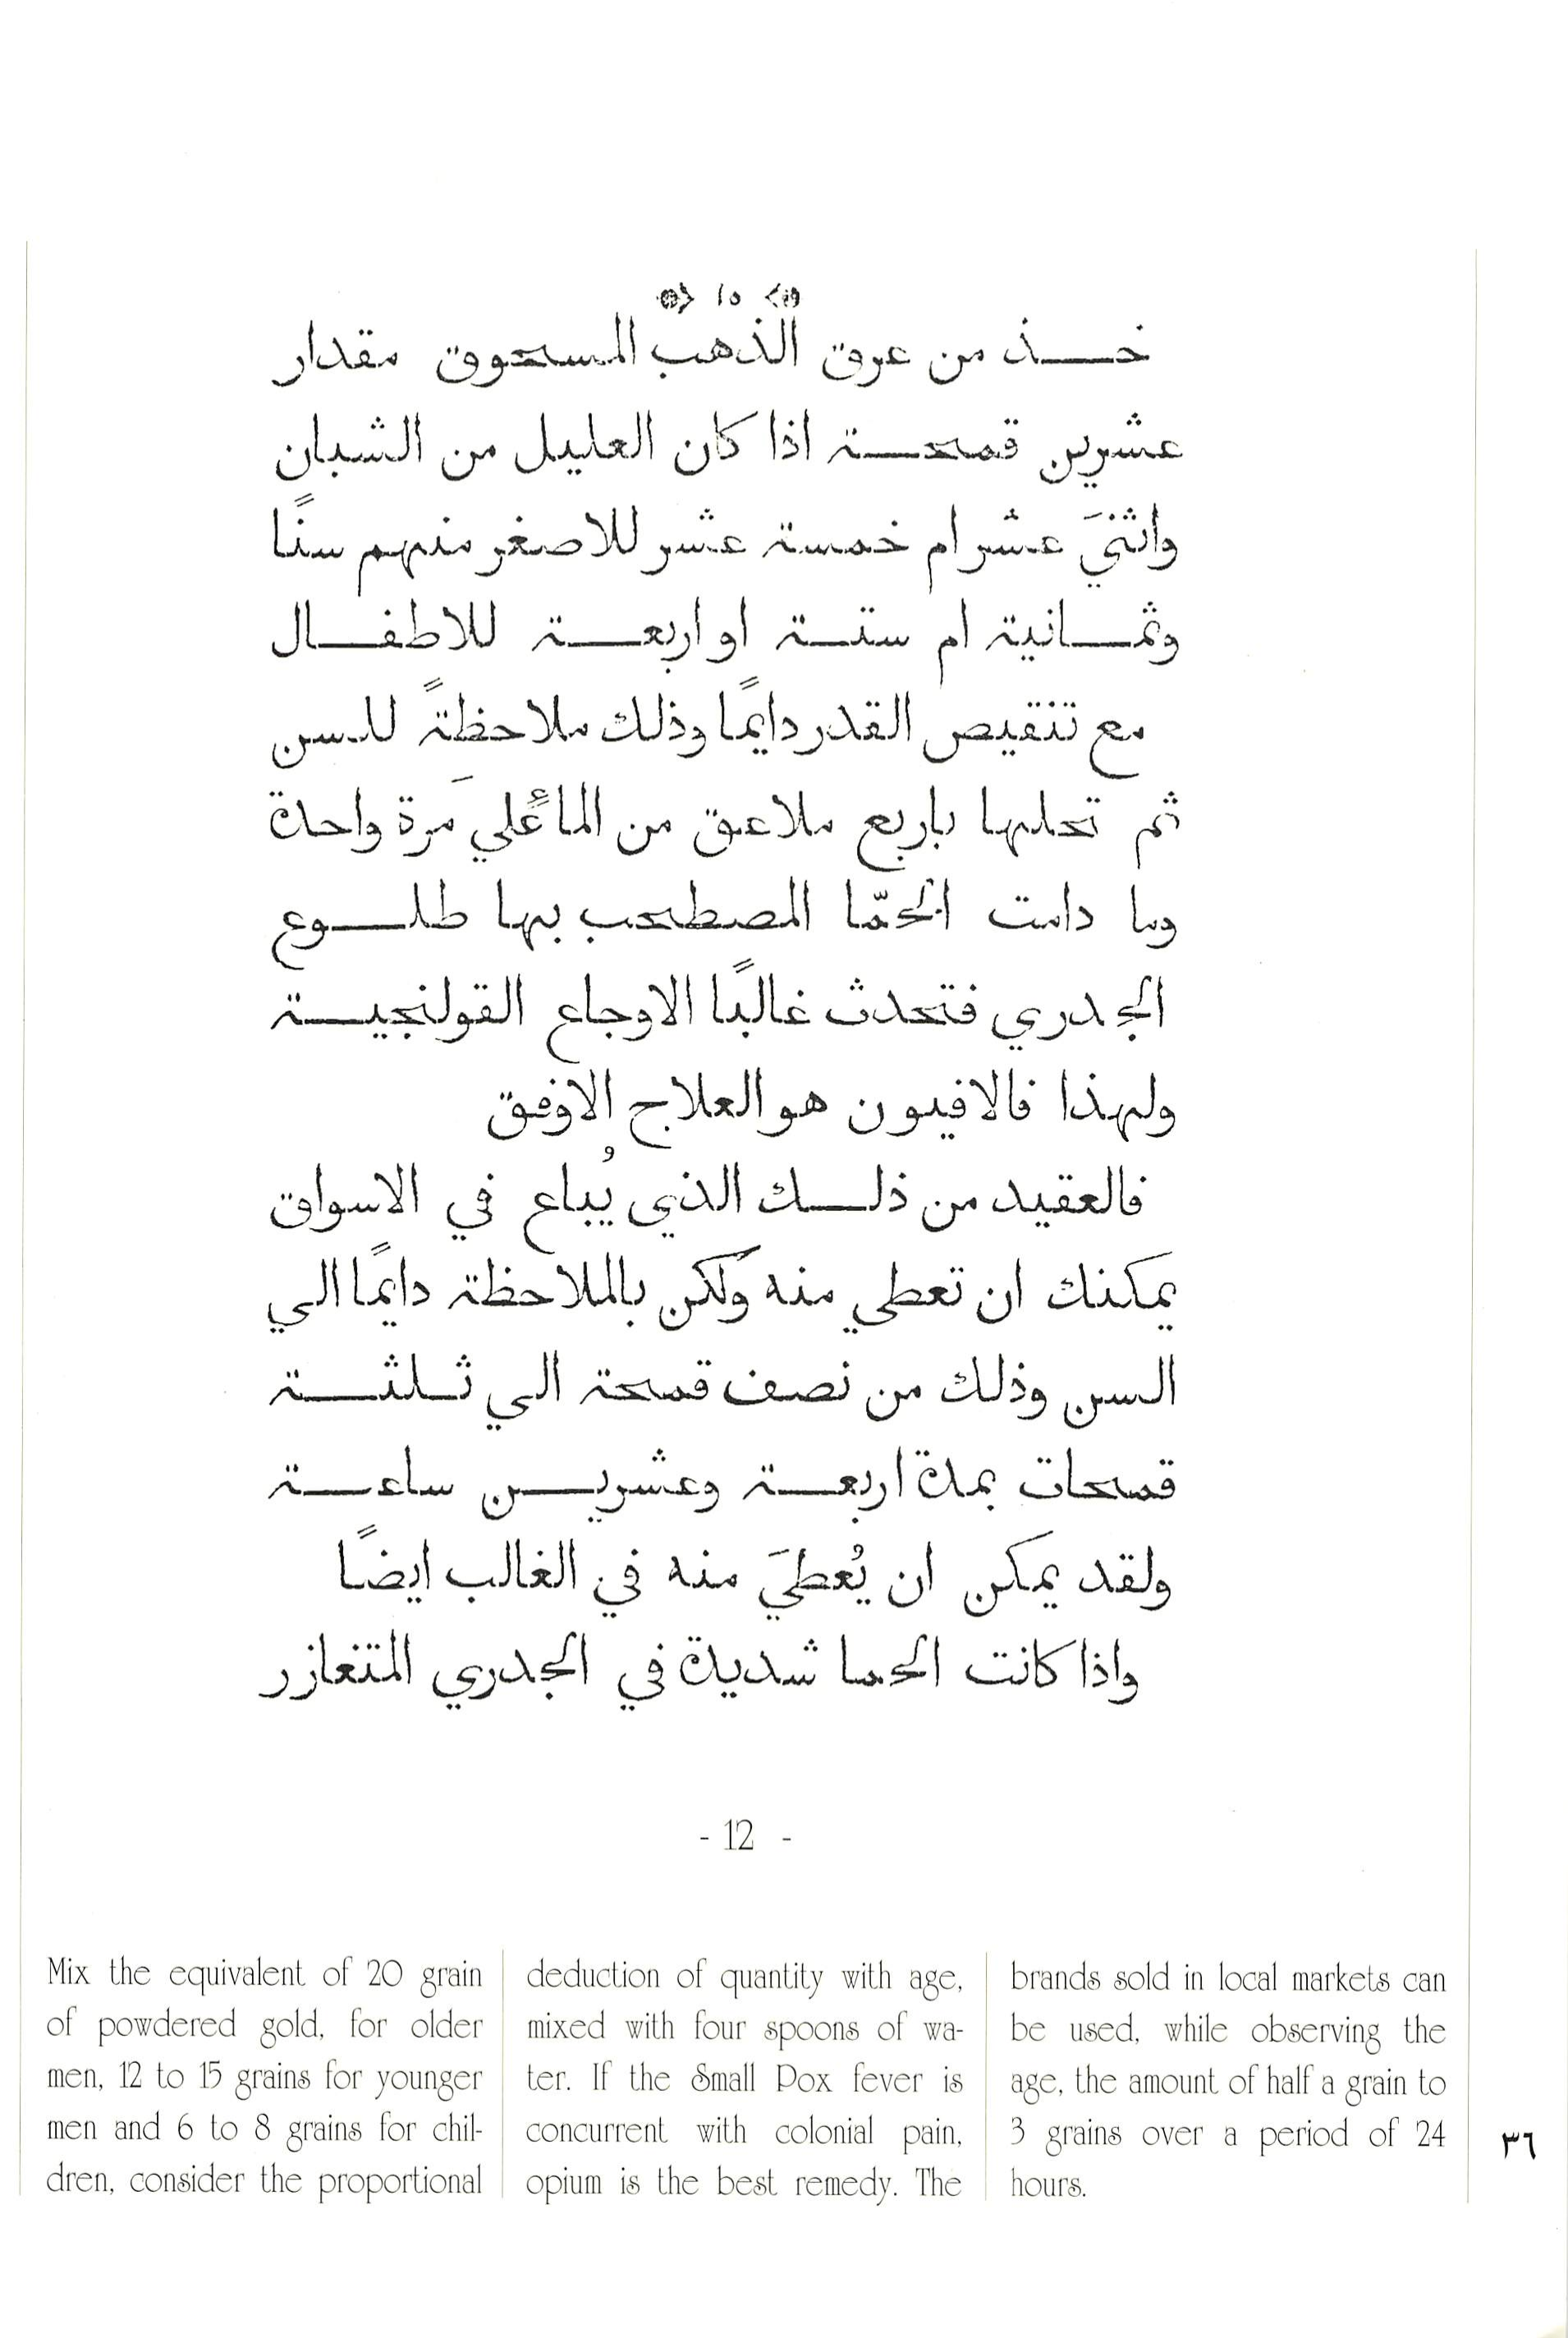 ١٥
خـــذ من عرق الذهب المسحوق مقدار
عشرين قمحـــة اذا كان العليل من الشبان
واثنيَ عشر ام خمسة عشر للاصغر منهم سنًا
وثمـــانية ام ستـــة او اربعـــة للاطفـــال
مع تنقيص القدر دايمًا وذلك ملاحظةً للسن
ثم تحلها باربع ملاعق من المآء عليَ مرة واحدة
وما دامت الحمّا المصطحب بها طلـــوع
الجدري فتحدث غالبًا الاوجاع القولنجيـــة
ولهذا فالافيون هو العلاج الاوفق
فالعقيد من ذلـــك الذي يُباع في الاسواق
يمكنك ان تعطي منه ولكن بالملاحظة دايمًا الي
السن وذلك من نصف قمحة الي ثـلثـــة
قمحات بمدة اربعـــة وعشريـــن ساعـــة
ولقد يمكن ان يُعطيَ منه في الغالب ايضًا
واذا كانت الحما شديدة في الجدري المتغازر
- 12 -
Mix the equivalent of 20 grain
of powdered gold, for older
men, 12 to 15 grains for younger
men and 6 to 8 grains for chil-
dren, consider the proportional
deduction of quantity with age,
mixed with four spoons of wa-
ter. If the Small Pox fever is
concurrent with colonial pain,
opium is the best remedy. The
brands sold in local markets can
be used, while observing the
age, the amount of half a grain to
3 grains over a period of 24
hours.
٣٦